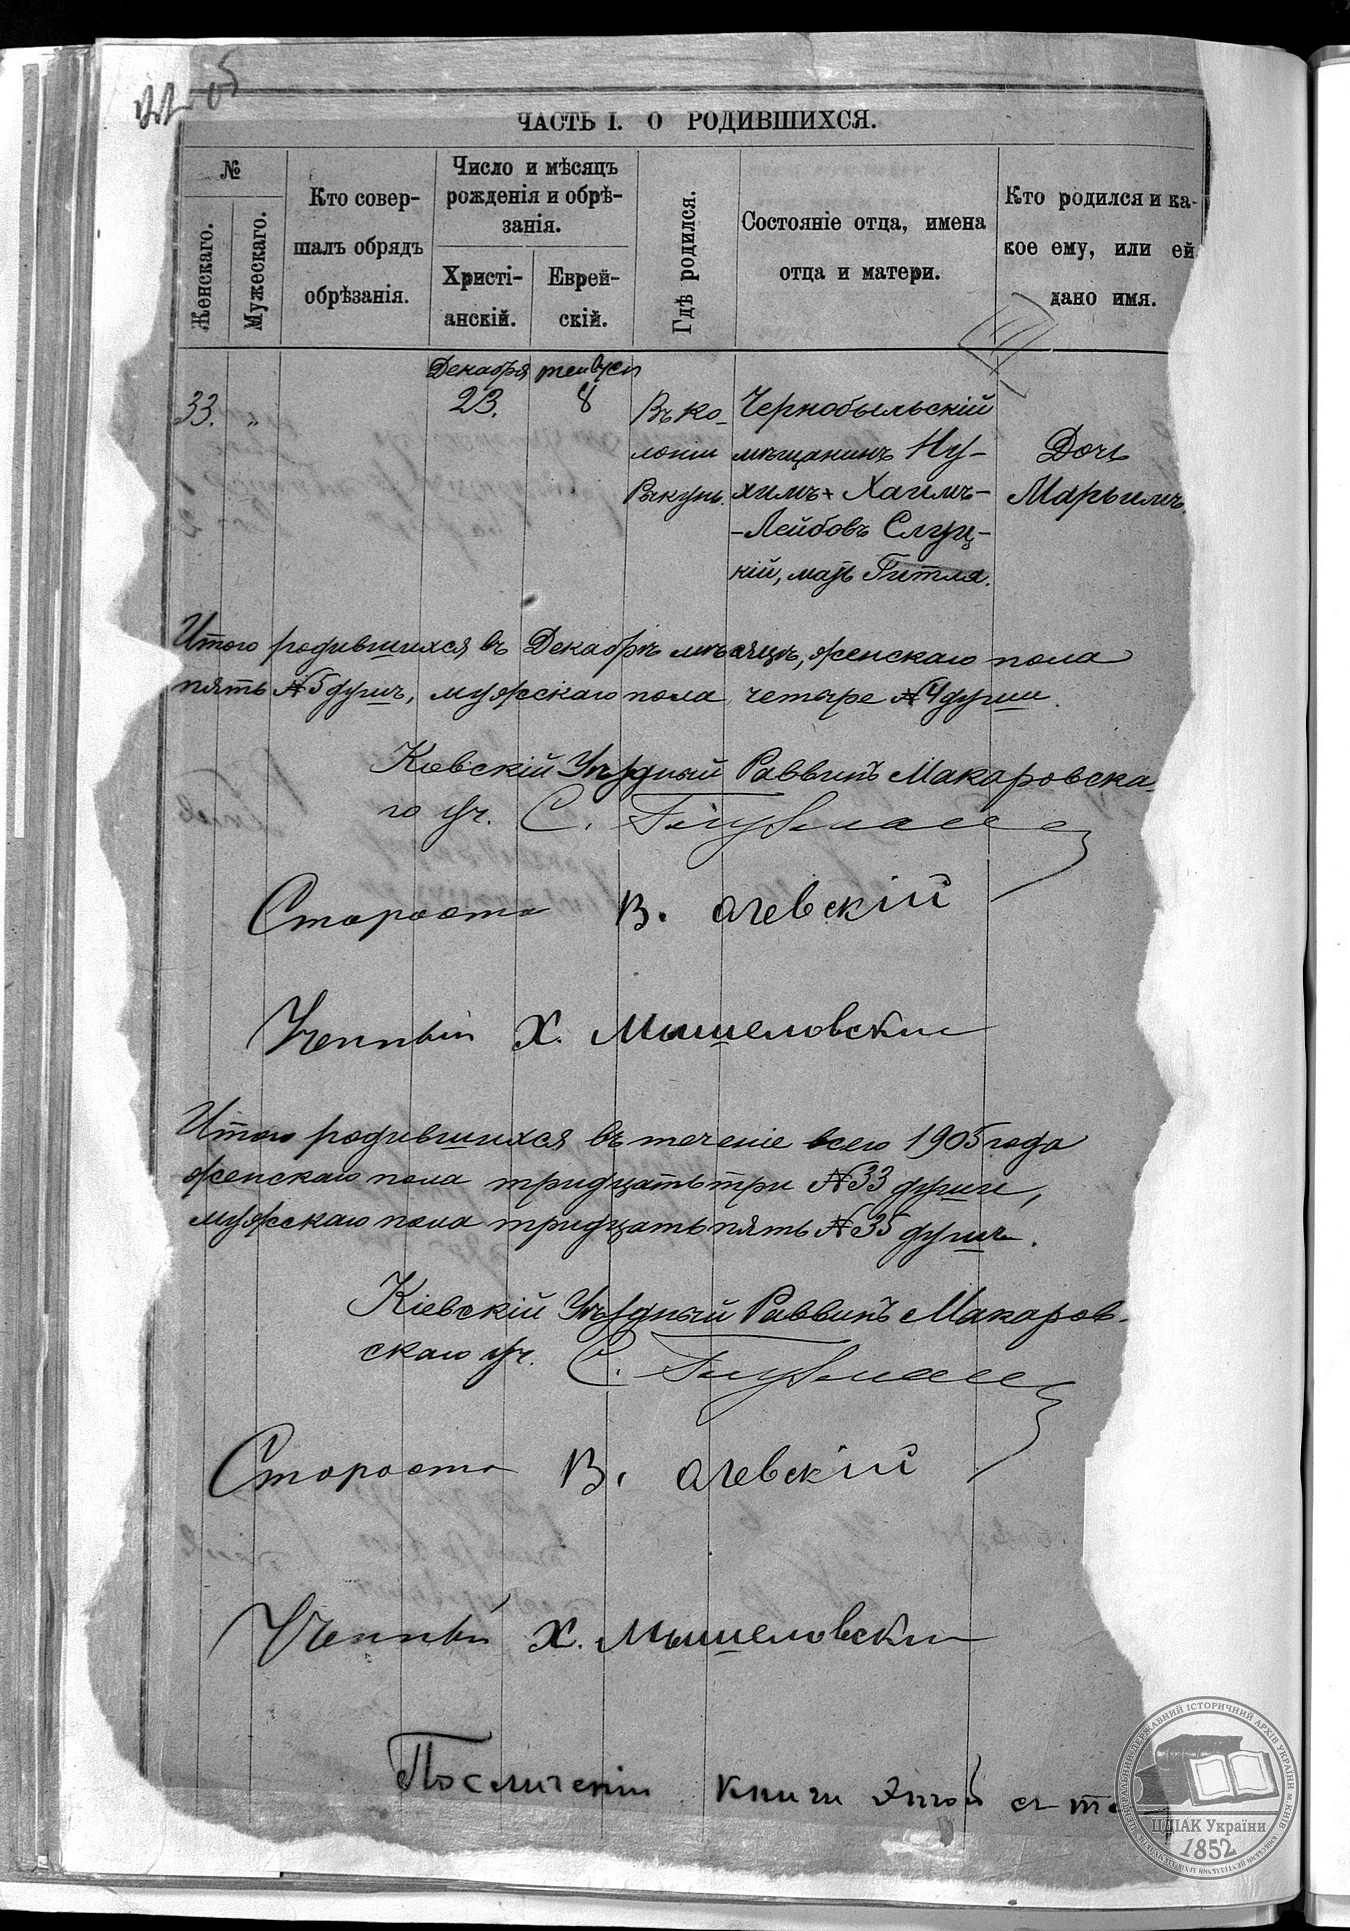 ЧАСТЬ I. О РОДИВШИХСЯ.
№
Женскаго.
Мужескаго.
Кто совер-
шалъ обрядъ
обрѣзанія.
Число и мѣсяцъ
рожденія и обрѣ-
занія.
Христі-
анскій.
Еврей-
скій.
Гдѣ родился.
Состояніе отца, имена
отца и матери.
Кто родился и ка-
кое ему, или ей
дано имя.
33. "
Декабря
23.
8
Въ ко-
лоніи
Ракупъ.
Чернобыльскій
мѣщанинъ Ну-
химъ Хаимъ-
-Лейбовъ Слуц-
кій, мать Гитля.
Дочь
Марьимъ.
Итого родившихся въ Декабрѣ мѣсяцѣ, женскаго пола
пять №5 душъ, мужскаго пола четыре №4 души.
Кіевскій Уѣздный Раввинъ Макаровска-
го уч. С.
Староста В.
Ученый Х. Мышеловскій
Итого родившихся въ теченіе всего 1905 года
женскаго пола тридцать три №33 души,
мужскаго пола тридцать пять №35 душъ.
Кіевскій Уѣздный Раввинъ Макаров-
скаго уч. С.
Староста В.
Ученый Х. Мышеловскій
По сличеніи книги этой съ
ЦЕНТРАЛЬНИЙ ДЕРЖАВНИЙ ІСТОРИЧНИЙ АРХІВ УКРАЇНИ М. КИЇВ
ЦДІАК України
1852